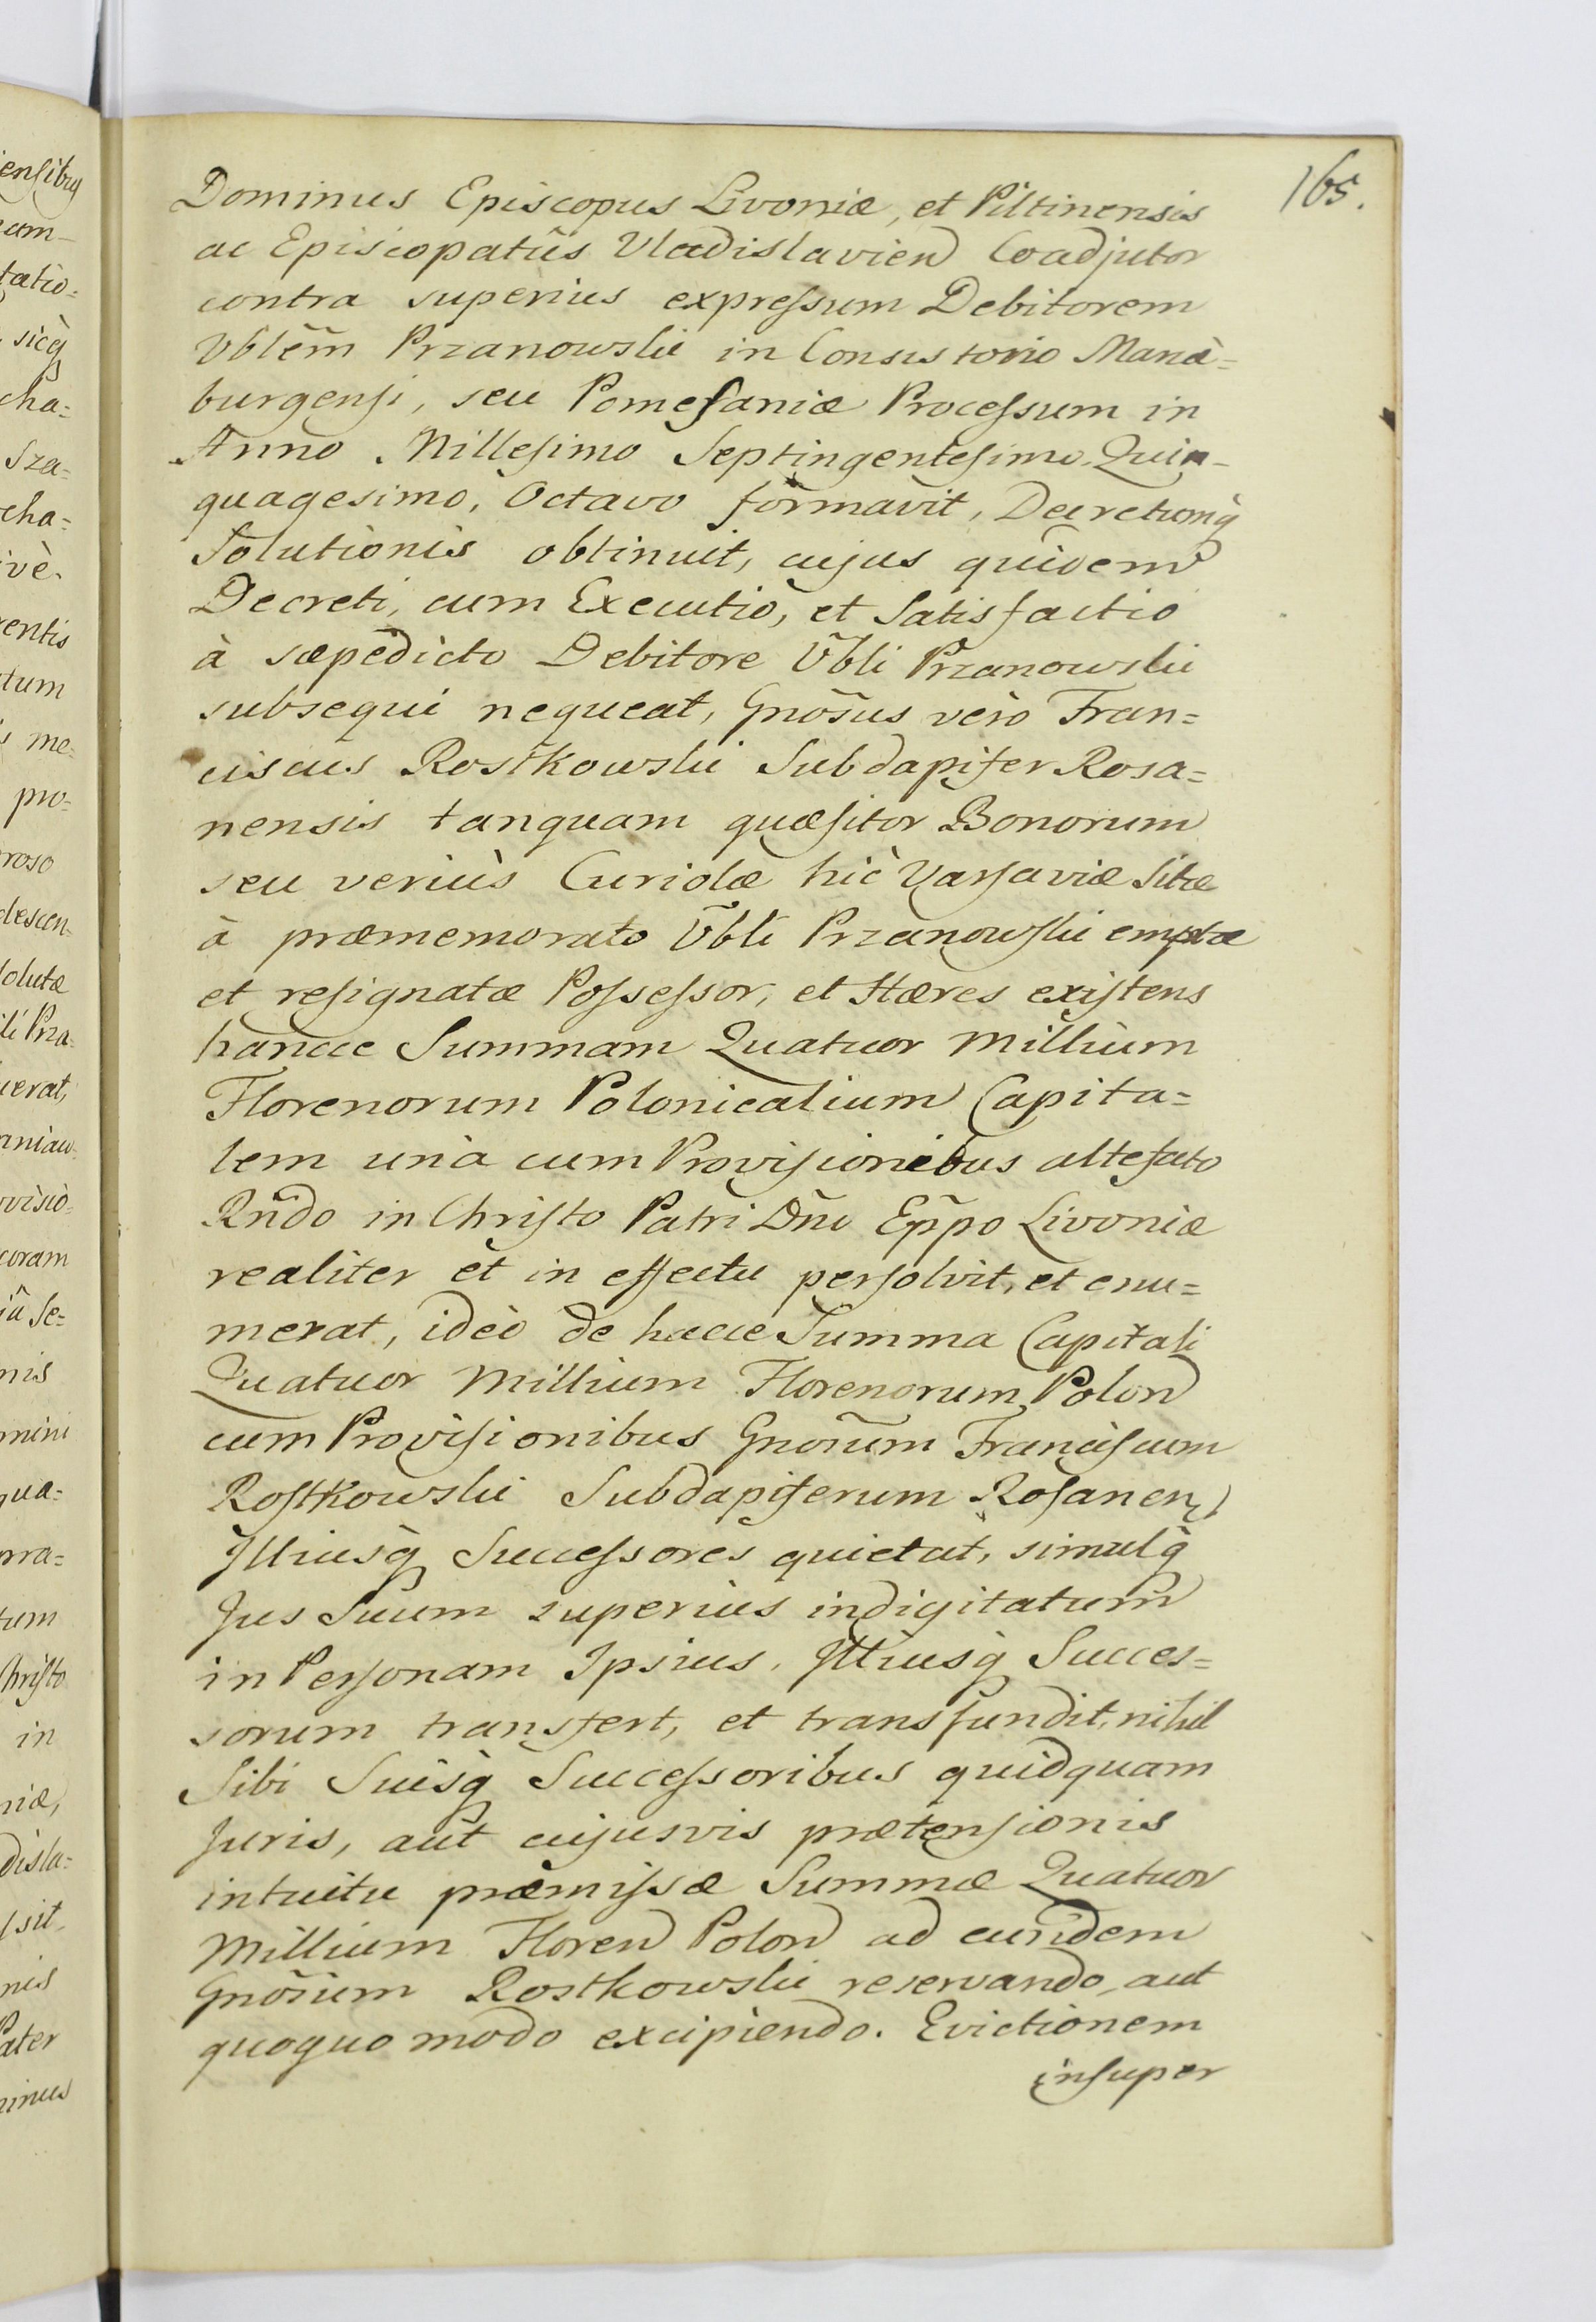 165.
Dominus Episcopus Livoniæ, et Piltinensis
ac Episcopatûs Vladislavien Coadjutor
contra superius expressum Debitorem
Vblem Przanowski in Consistorio Mariæ=
burgensi, seu Pomesaniæ Processum in
Anno Millesimo Septingentesimo Quin-
quagesimo, Octavo formavit, Decretumq́
Solutionis obtinuit, cujus quidem
Decreti, cum Executio, et Satisfactio
à sæpedicto Debitore Vbli Przanowski
subsequi nequeat, Gnosus vero Fran=
ciscus Rostkowski Subdapifer Rosa=
nensis tanquam quæsitor Bonorum
seu verius Curiolæ hic Varsaviæ sitæ
à præmemorato Vbli Przanowski emptæ
et resignatæ Possessor, et Hæres existens
hancce Summam Quatuor Millium
Florenorum Polonicalium Capita=
lem unà cum Provisionibus altefato
Rndo in Christo Patri Dno Eppo Livoniæ
realiter et in effectu persolvit, et enu=
merat, ideò de hacce Summa Capitali
Quatuor Millium Florenorum Polon
cum Provisionibus Gnosum Franciscum
Rostkowski Subdapiferum Rosanen
Illiusq́ Successores quietat, simulq́
Jus Suum superius indigitatum
in Personam Ipsius, Illiusq́ Succes=
sorum transfert, et transfundit, nihil
Sibi Suisq́ Successoribus quidquam
Juris, aut cujusvis prætensionis
intuitu præmissæ Summæ Quatuor
Millium Floren Polon ad eundem
Gnosum Rostkowski reservando, aut
quoquo modo excipiendo. Evictionem
insuper